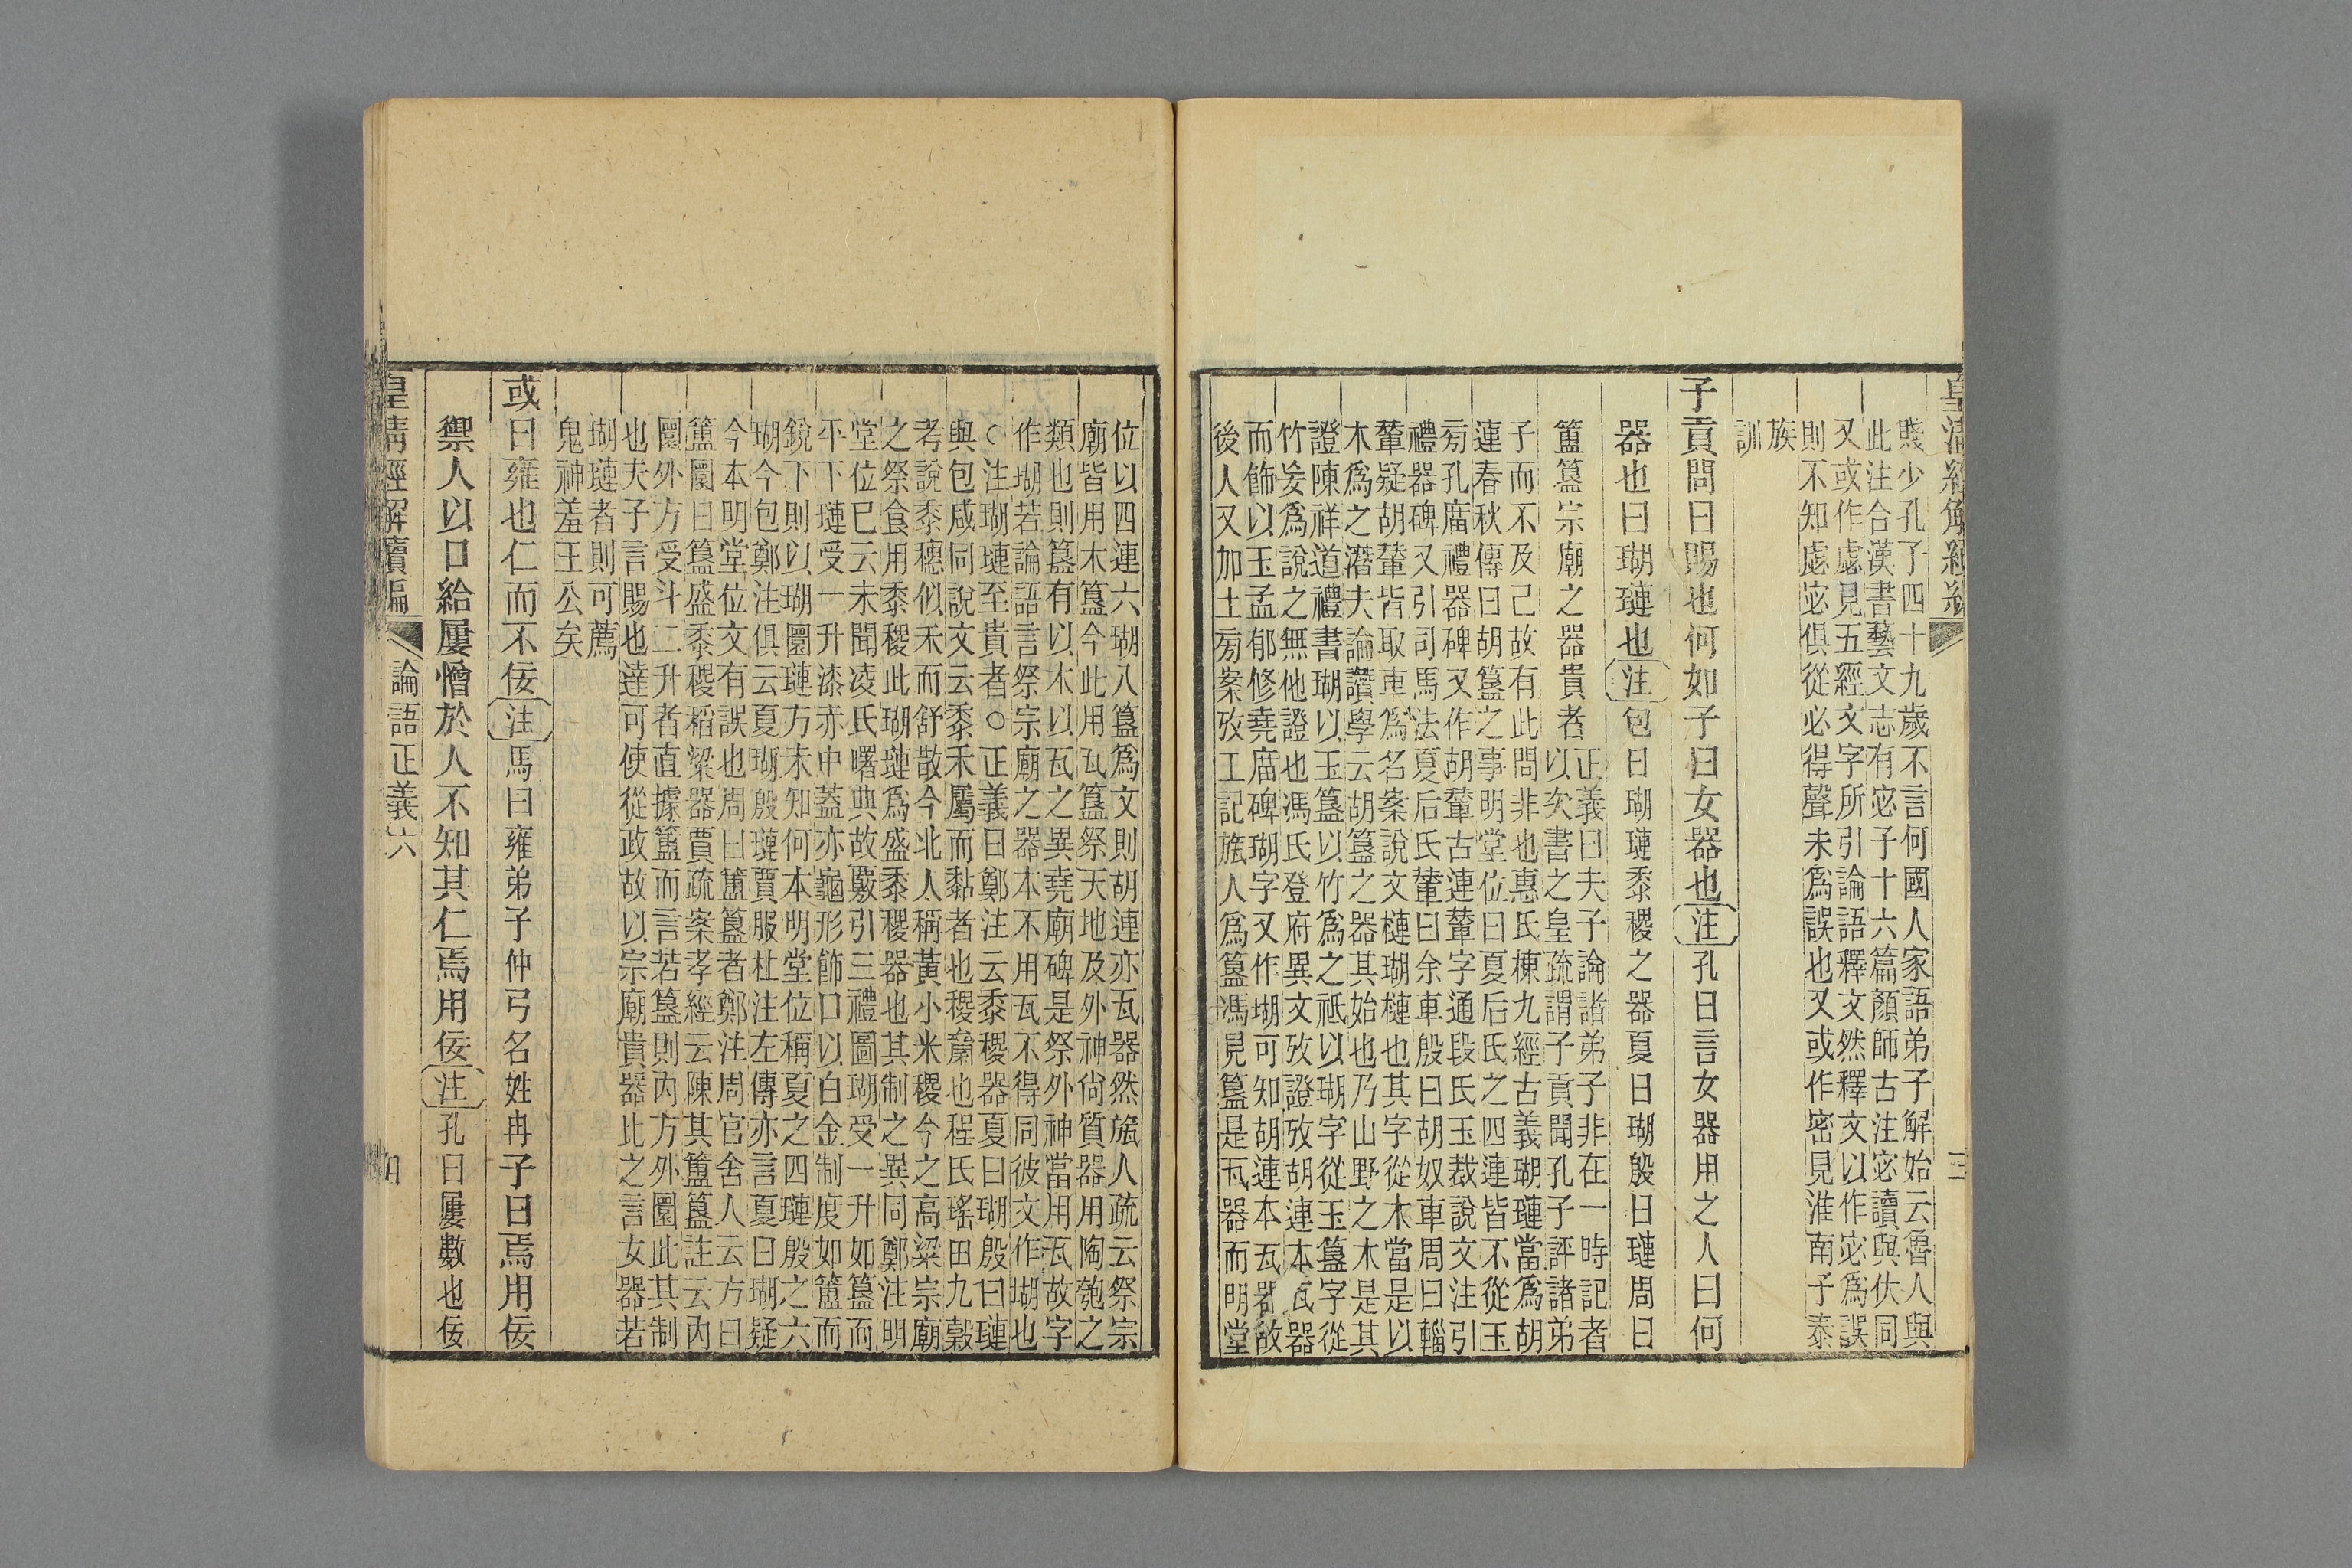 皇清經解續編
三
賤少孔子四十九歲不言何國人家語弟子解始云魯人與
此注合漢書藝文志有宓子十六篇顏師古注宓讀與伏同
又或作虙見五經文字所引論語釋文然釋文以作宓爲誤
則不知虙宓俱從必得聲未爲誤也又或作密見淮南子泰
族
訓
子貢問曰賜也何如子曰女器也注孔曰言女器用之人曰何
器也曰瑚璉也注包曰瑚璉黍稷之器夏曰瑚殷曰璉周曰
簠簋宗廟之器貴者
正義曰夫子論諸弟子非在一時記者
以矢書之皇疏謂子貢聞孔子評諸弟
子而不及己故有此問非也惠氏棟九經古義瑚璉當爲胡
連春秋傳曰胡簋之事明堂位曰夏后氏之四連皆不從玉
㫄孔廟禮器碑又作胡輦古連輦字通段氏玉裁說文注引
禮器碑又引司馬法夏后氏輦曰余車殷曰胡奴車周曰輜
輦疑胡輦皆取車爲名案說文槤瑚槤也其字從木當是以
木爲之潛夫論讚學云胡簋之器其始也乃山野之木是其
證陳祥道禮書瑚以玉簋以竹爲之祇以瑚字從玉簋字從
竹妄爲說之無他證也馮氏登府異文攷證攷胡連本瓦器
而飾以玉孟郁修堯廟碑瑚字又作㼮可知胡連本瓦器故
後人又加土㫄案攷工記旊人爲簋馮見簋是瓦器而明堂
位以四連六瑚八簋爲文則胡連亦瓦器然旊人疏云祭宗
廟皆用木簋今此用瓦簋祭天地及外神尚質器用陶匏之
類也則簋有以木以瓦之異堯廟碑是祭外神當用瓦故字
作㼮若論語言祭宗廟之器本不用瓦不得同彼文作㼮也
○注瑚璉至貴者○正義曰鄭注云黍稷器夏曰瑚殷曰璉
與包咸同說文云黍禾屬而黏者也稷齋也程氏瑤田九穀
考說黍穗似禾而舒散今北人稱黃小米稷今之高粱宗廟
之祭食用黍稷此瑚璉爲盛黍稷器也其制之異同鄭注明
堂位已云未聞凌氏曙典故覈引三禮圖瑚受一升如簋而
平下璉受一升漆赤中蓋亦龜形飾口以白金制度如簠而
銳下則以瑚圜璉方未知何本明堂位稱夏之四璉殷之六
瑚今包鄭注俱云夏瑚殷璉賈服杜注左傳亦言夏曰瑚疑
今本明堂位文有誤也周曰簠簋者鄭注周官舍人云方曰
簠圜曰簋盛黍稷稻粱器賈疏案孝經云陳其簠簋註云內
圜外方受斗二升者直據簠而言若簋則內方外圜此其制
也夫子言賜也達可使從政故以宗廟貴器此之言女器若
瑚璉者則可薦
鬼神羞王公矣
或曰雍也仁而不佞注馬曰雍弟子仲弓名姓冉子曰焉用佞
禦人以口給屢憎於人不知其仁焉用佞注孔曰屢數也佞
皇清經解續編
論語正義六
四